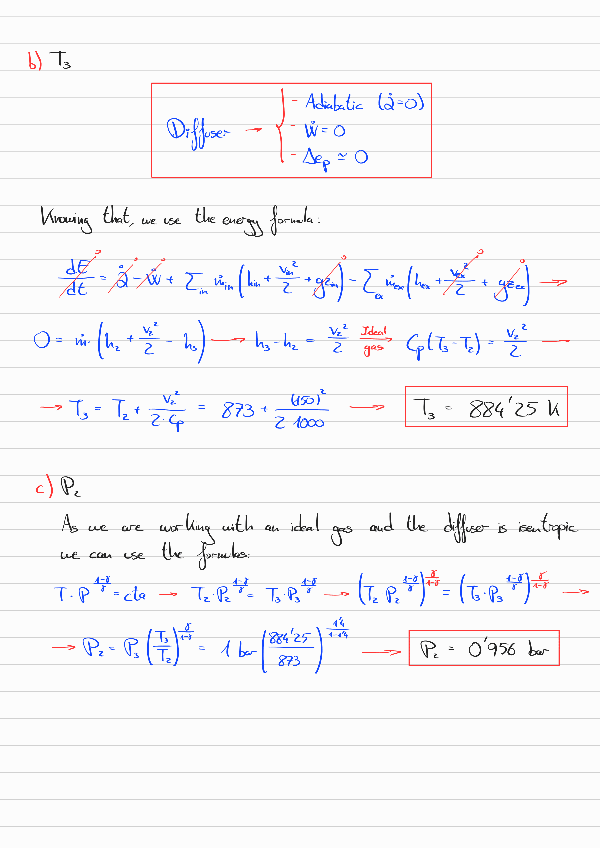 b) T₃
Diffuser → { - Adiabatic (Q̇=0)
- Ẇ = 0
- Δeₚ ≃ 0
Knowing that, we use the energy formula:
dE/dt = Q̇ - Ẇ + Σ_in ṁ_in (h_in + v_in²/2 + gz_in) - Σ_ex ṁ_ex (h_ex + v_ex²/2 + gz_ex) →
0 = ṁ · (h₂ + v₂²/2 - h₃) → h₃ - h₂ = v₂²/2 Ideal gas → Cp (T₃ - T₂) = v₂²/2 —
→ T₃ = T₂ + v₂²/(2·Cp) = 873 + (150)²/(2·1000) → T₃ = 884'25 K
c) P₂
As we are working with an ideal gas and the diffuser is isentropic
we can use the formulas:
T·P^((1-γ)/γ) = cta → T₂·P₂^((1-γ)/γ) = T₃·P₃^((1-γ)/γ) → (T₂ P₂^((1-γ)/γ))^(γ/(1-γ)) = (T₃·P₃^((1-γ)/γ))^(γ/(1-γ)) →
→ P₂ = P₃ (T₃/T₂)^(γ/(1-γ)) = 1 bar (884'25/873)^(1'4/(1-1'4)) → P₂ = 0'956 bar